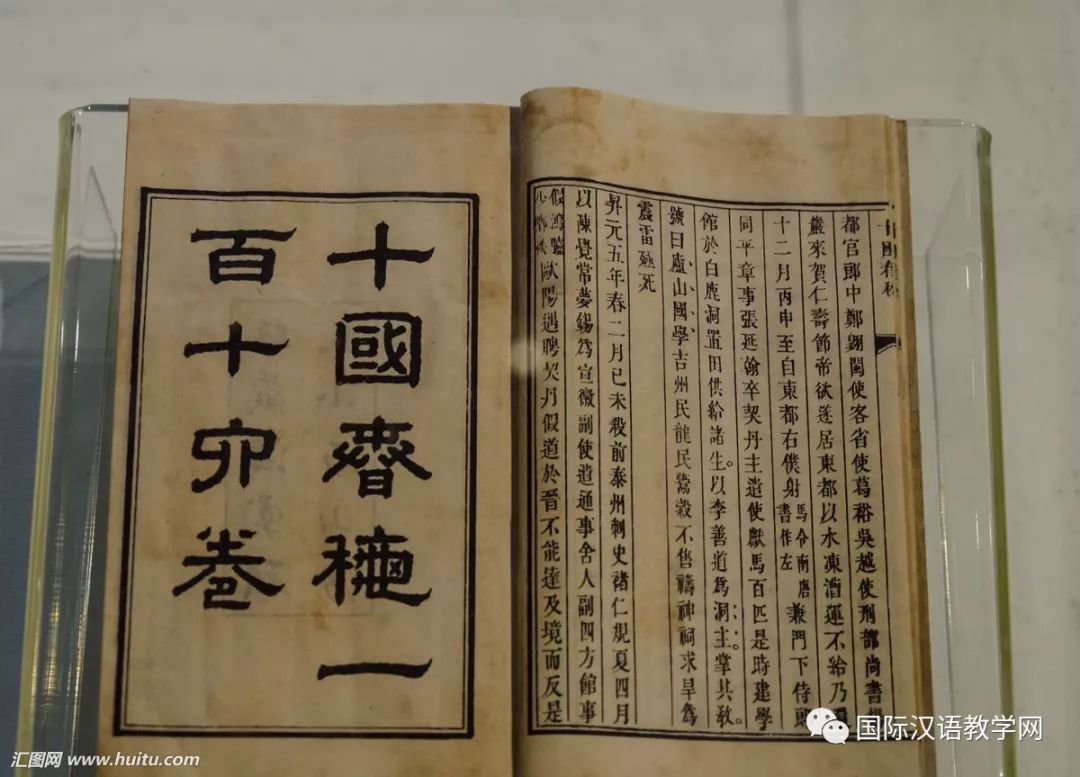 十國春秋
都官郎中鄭翺閩使客省使葛裕吳越使刑部尚書楊
嚴來賀仁壽節帝欲遂居東都以水凍漕運不給乃還
十二月丙申至自東都右僕射馬令南唐書作左兼門下侍郎
同平章事張延翰卒契丹主遣使獻馬百匹是時建學
館於白鹿洞置田供給諸生。以李善道爲洞主。掌其教。
號曰廬山國學吉州民龍民蓄穀不售禱神祠求旱爲
震雷殛死
昇元五年春二月己未殺前泰州刺史褚仁規夏四月
以陳覺常夢錫爲宣徽副使遣通事舍人副四方館事
假鴻臚歐陽遇聘契丹假道於晉不能達及境而反是
十國春秋一
百十六卷
国际汉语教学网
汇图网 www.huitu.com